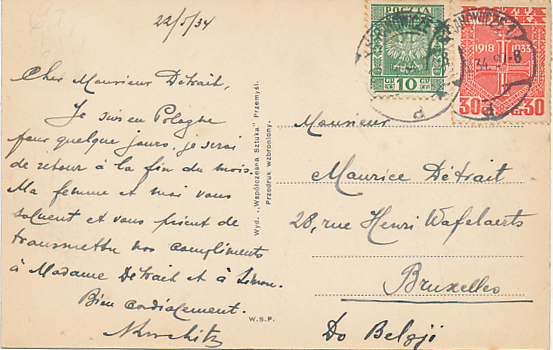 22/5/34
Cher Monsieur Détrait,
Je suis en Pologne
pour quelques jours, je serai
de retour à la fin du mois.
Ma femme et moi vous
saluent et vous prient de
transmettre nos compliments
à Madame Détrait et à Simon.
Bien cordialement.
Wyd. „Współczesna Sztuka” Przemyśl.
Przedruk wzbroniony.
W.S.P.
POCZTA
GR 10 GR
1918 1933
30 GR 30
34
Monsieur
Maurice Détrait
28, rue Henri Wafelaerts
Bruxelles
Do Belgji